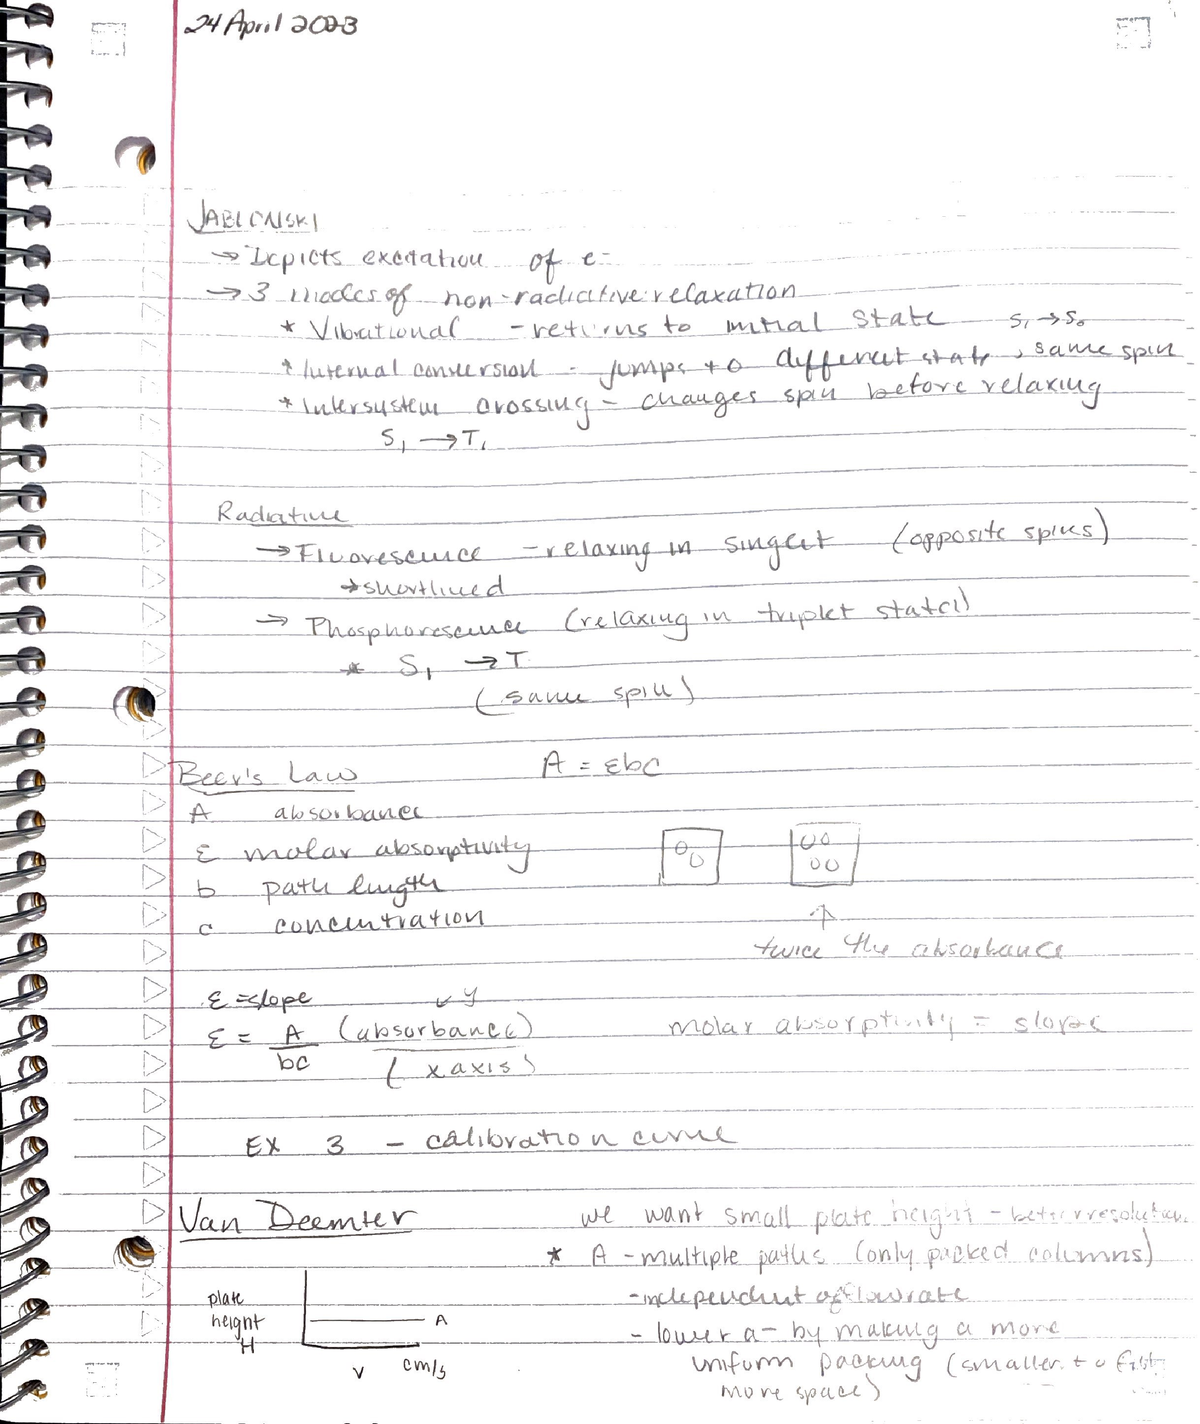 24 April 2023
JABLONSKI
→ Depicts excitation of e-
→ 3 modes of non-radiative relaxation
* Vibrational - returns to initial state S₁ → S₀
* Internal conversion - jumps to different state, same spin
* Intersystem crossing - changes spin before relaxing
S₁ → T₁
Radiative
→ Fluorescence - relaxing in singlet (opposite spins)
→ shortlived
→ Phosphorescence (relaxing in triplet state)
* S₁ → T
(same spin)
Beer's Law A = εbc
A absorbance
ε molar absorptivity
b path length
c concentration
twice the absorbance
ε = slope ↙ y
ε = A/bc (absorbance)/(x axis) molar absorptivity = slope
EX 3 - calibration curve
Van Deemter we want small plate height - better resolution
* A - multiple paths (only packed columns)
- independent of flowrate
- lower a - by making a more
uniform packing (smaller to
more space)
plate
height
H
A
v cm/s